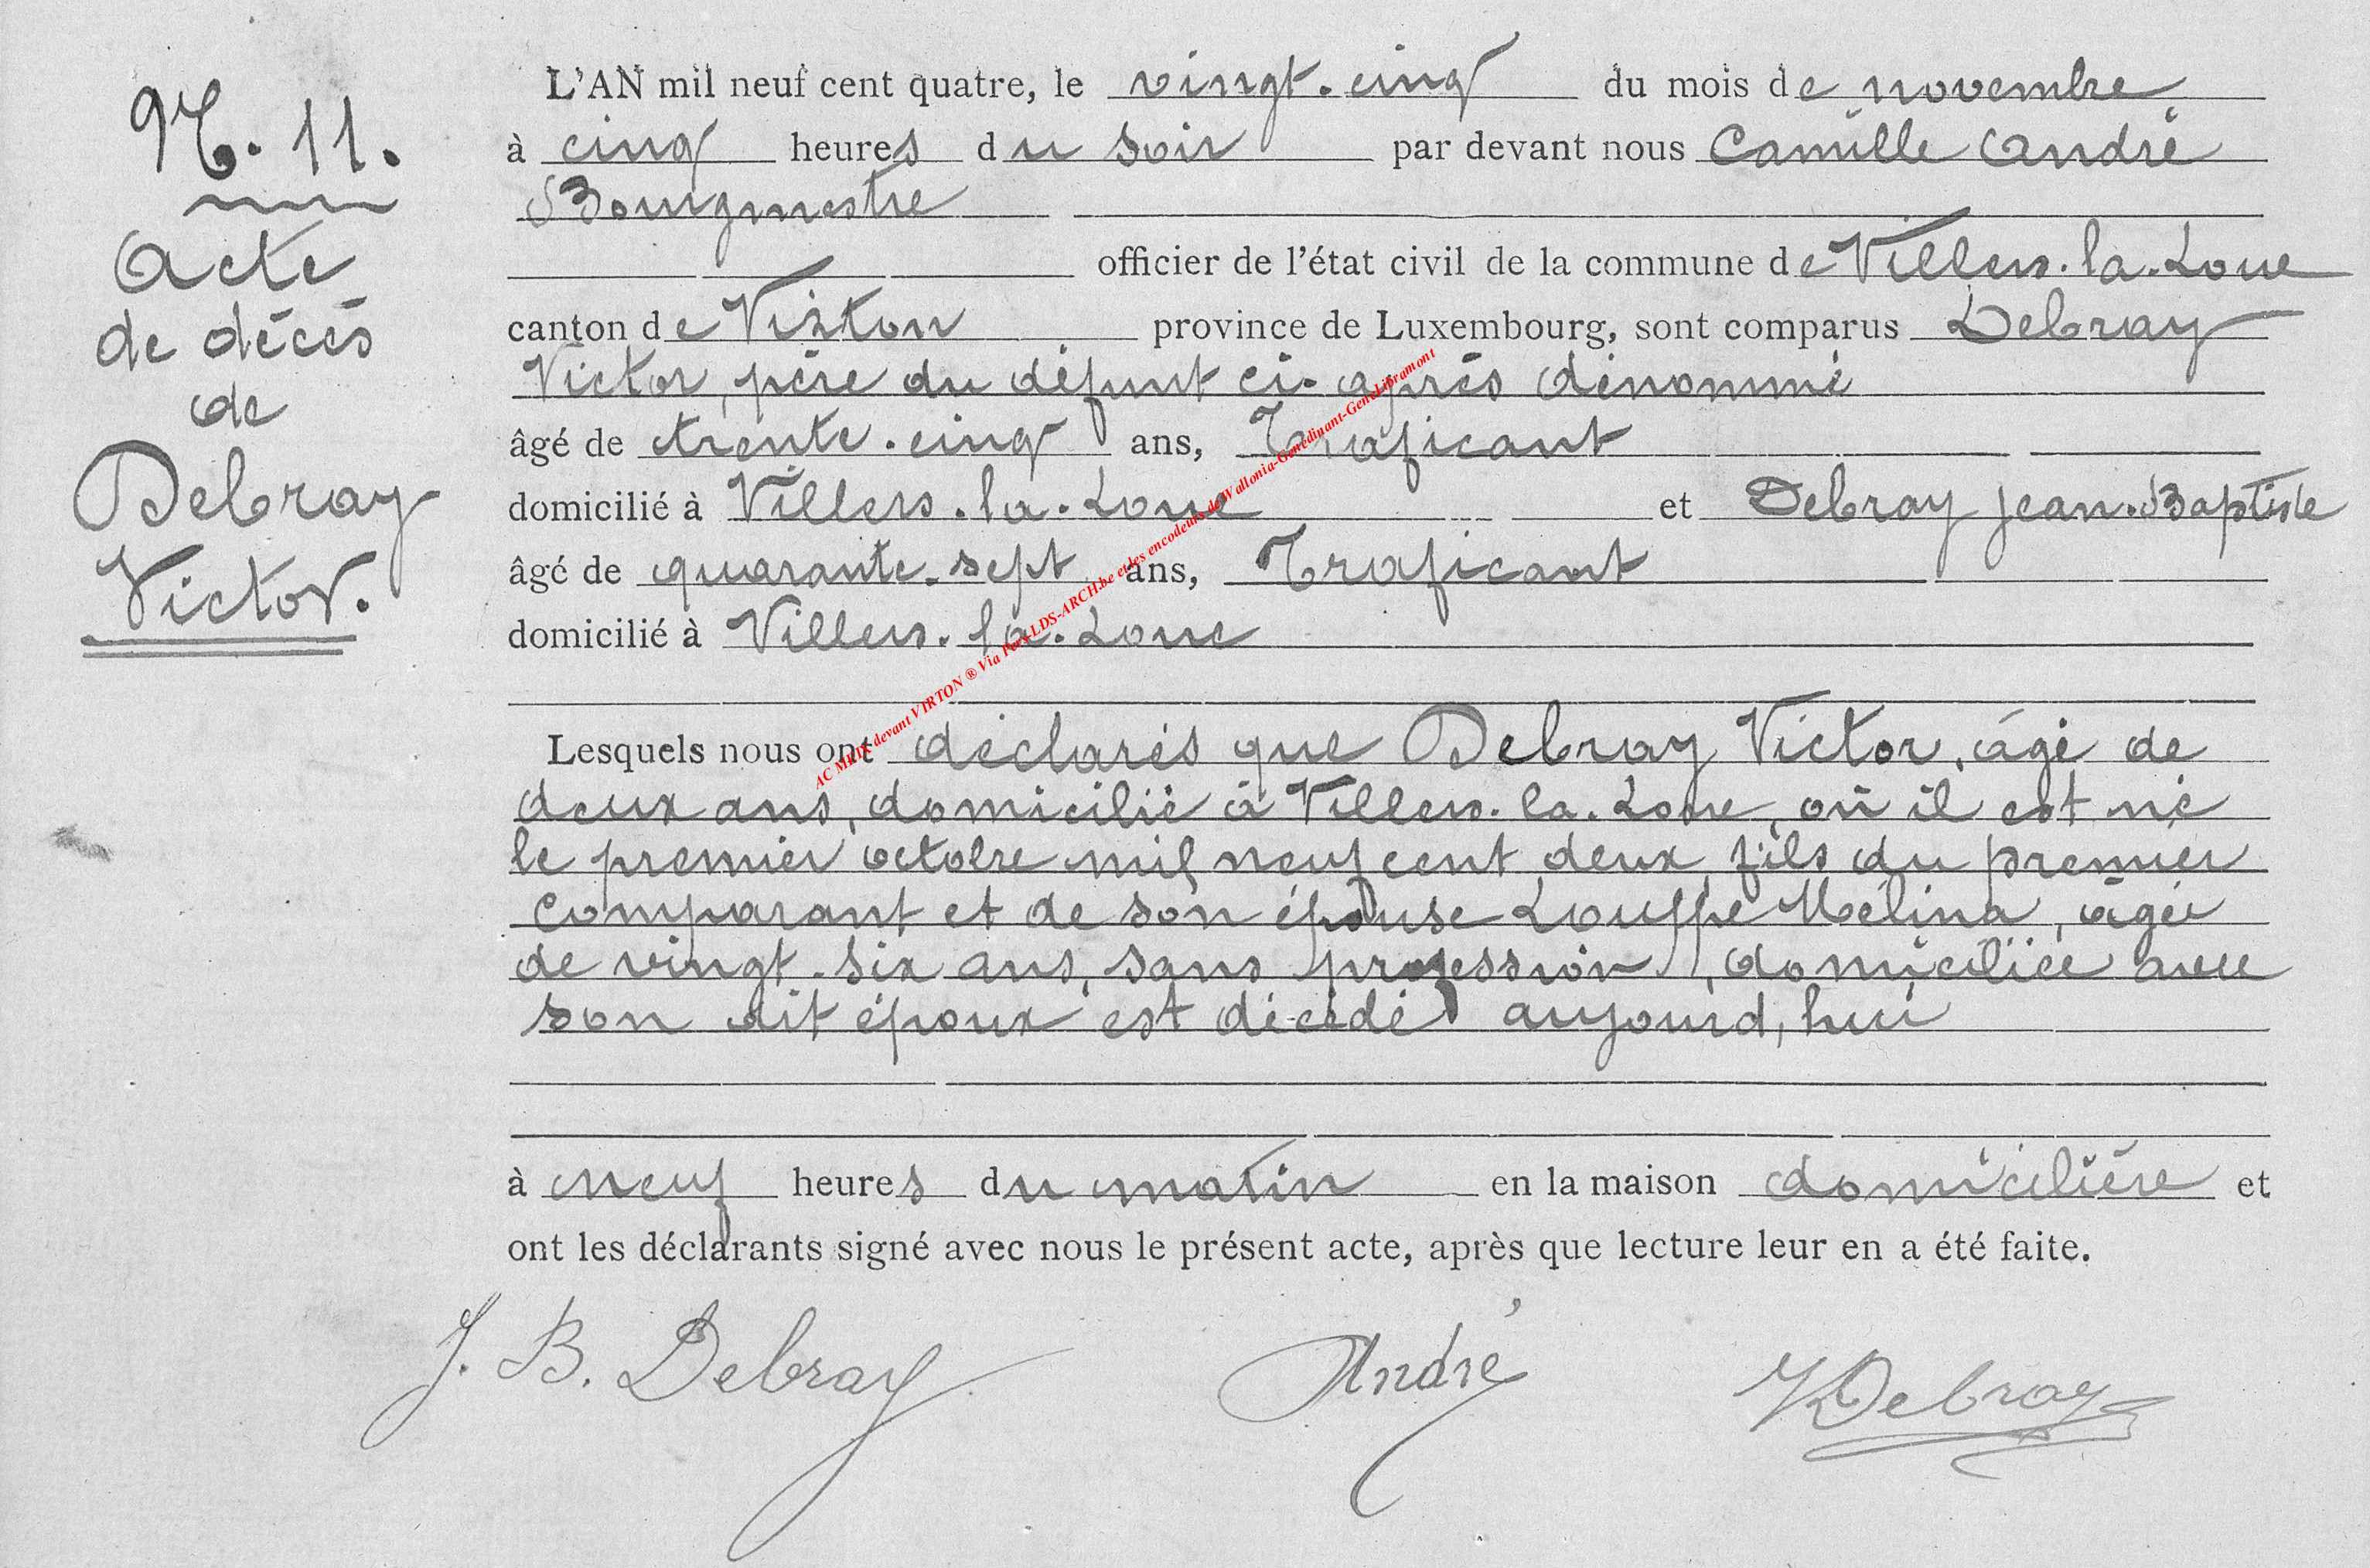 N. 11.
Acte
de décès
de
Debray
Victor.
L'AN mil neuf cent quatre, le vingt-cinq du mois de novembre
à cinq heures du soir par devant nous Camille André
Bourgmestre
officier de l'état civil de la commune de Villers-la-Loue
canton de Virton province de Luxembourg, sont comparus Debray
Victor, père du défunt ci-après dénommé
âgé de trente-cinq ans, Traficant
domicilié à Villers-la-Loue et Debray Jean-Baptiste
âgé de quarante-sept ans, Traficant
domicilié à Villers-la-Loue
Lesquels nous ont déclarés que Debray Victor, âgé de
deux ans, domicilié à Villers-la-Loue, où il est né
le premier octobre mil neuf cent deux, fils du premier
comparant et de son épouse Louppe Mélina, âgée
de vingt-six ans, sans profession, domiciliée avec
son dit époux est décédé aujourd'hui
à neuf heures du matin en la maison domicilière et
ont les déclarants signé avec nous le présent acte, après que lecture leur en a été faite.
J. B. Debray André VDebray
AC MRTX devant VIRTON ® Via LDS-ARCH.be et les encodeurs de Wallonia-Genedinant-GeneLibramont